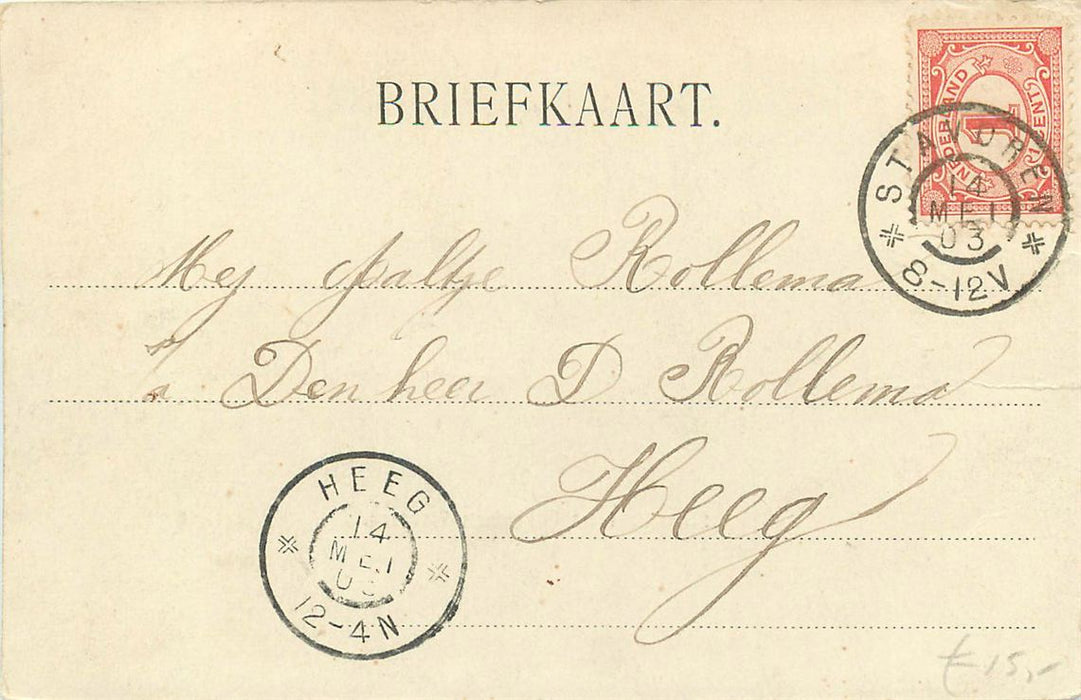 BRIEFKAART.
NEDERLAND 1 CENT
STAVOREN
14
MEI
03
8-12V
Mej Rollema
Den heer D Rollema
Heeg
HEEG
14
MEI
03
12-4N
€ 15,-